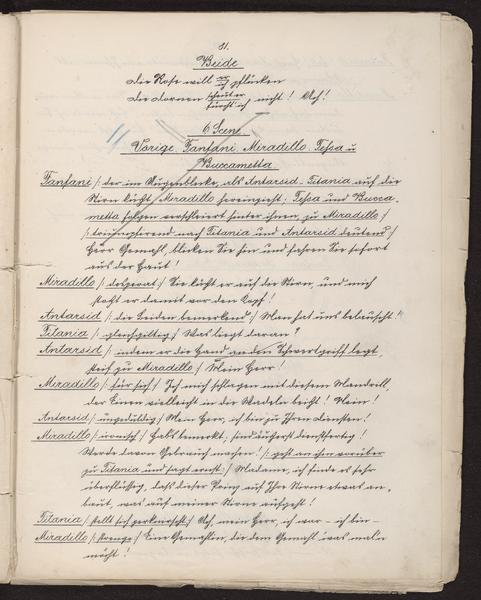 81.
Beide
Die Rose will er/ich pflücken
Die Dornen scheut er/fürcht' ich nicht! Ach!
6 Scene
Vorige. Fanfani. Miradillo. Tessa u
Buccametta
Fanfani /: der im Augenblicke, als Antarsid Titania auf die
Stirn küßt, Miradillo hereinzieht; Tessa und Bucca-
metta folgen verschleiert hinter ihnen, zu Miradillo :/
/: triumphirend nach Titania und Antarsid deutend :/
Herr Gemahl, blicken Sie hin und fahren Sie sofort
aus der Haut!
Miradillo /: desperat :/ Sie küßt er auf die Stirn, und mich
stoßt er damit vor den Kopf!
Antarsid /: die Beiden bemerkend :/ Man hat uns belauscht!
Titania /: gleichgiltig :/ Was liegt daran?
Antarsid /: indem er die Hand an den Schwertgriff legt,
steif zu Miradillo :/ Mein Herr!
Miradillo /: für sich :/ Ich mich schlagen mit diesem Mandrill,
der Einen vielleicht in die Wadeln beißt! Nein!
Antarsid /: ungeduldig :/ Mein Herr, ich bin zu Ihren Diensten!
Miradillo /: ironisch :/ Habs bemerkt; sind äußerst dienstfertig!
Werde davon Gebrauch machen! /: geht an ihm vorüber
zu Titania und sagt ernst :/ Madame, ich finde es sehr
überflüssig, daß dieser Prinz auf Ihre Stirne etwas an-
baut, was auf meiner Stirne aufgeht!
Titania /: stellt sich zerknirscht :/ Ach, mein Herr, ich war – ich bin –
Miradillo /: strenge :/ Eine Gemahlin, die dem Gemahl was mal'n
möcht!